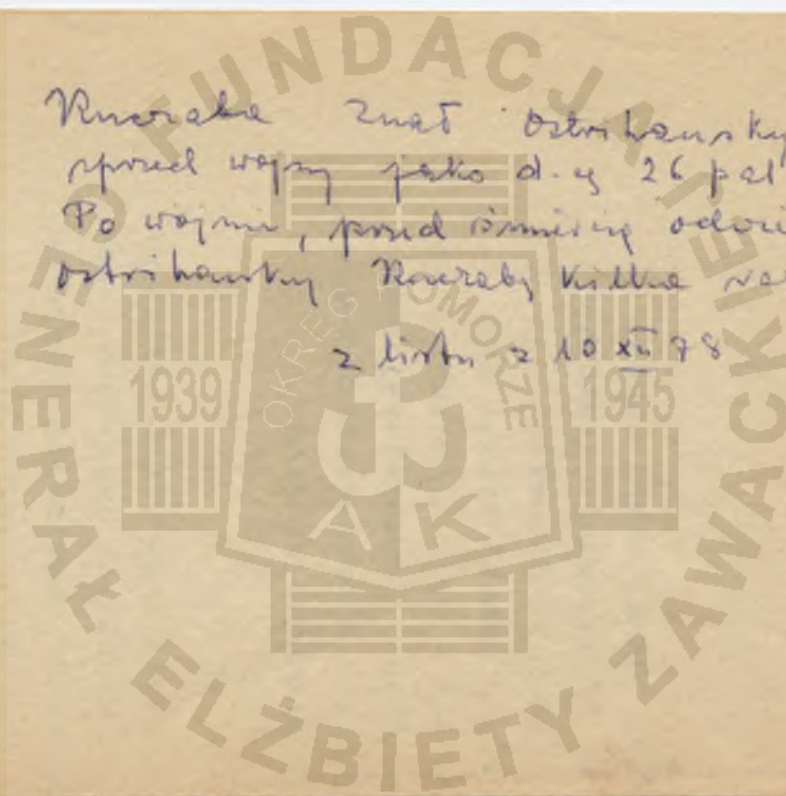 znał Ostrihansky
sprzed wojny jako d-cę 26 pal
Po wojnie, przed śmiercią odwie
Ostrihansky kilka ra
z listu z 10 XII 78
FUNDACJA
GENERAŁ ELŻBIETY ZAWACKIEJ
OKRĘG POMORZE
1939 1945
AK